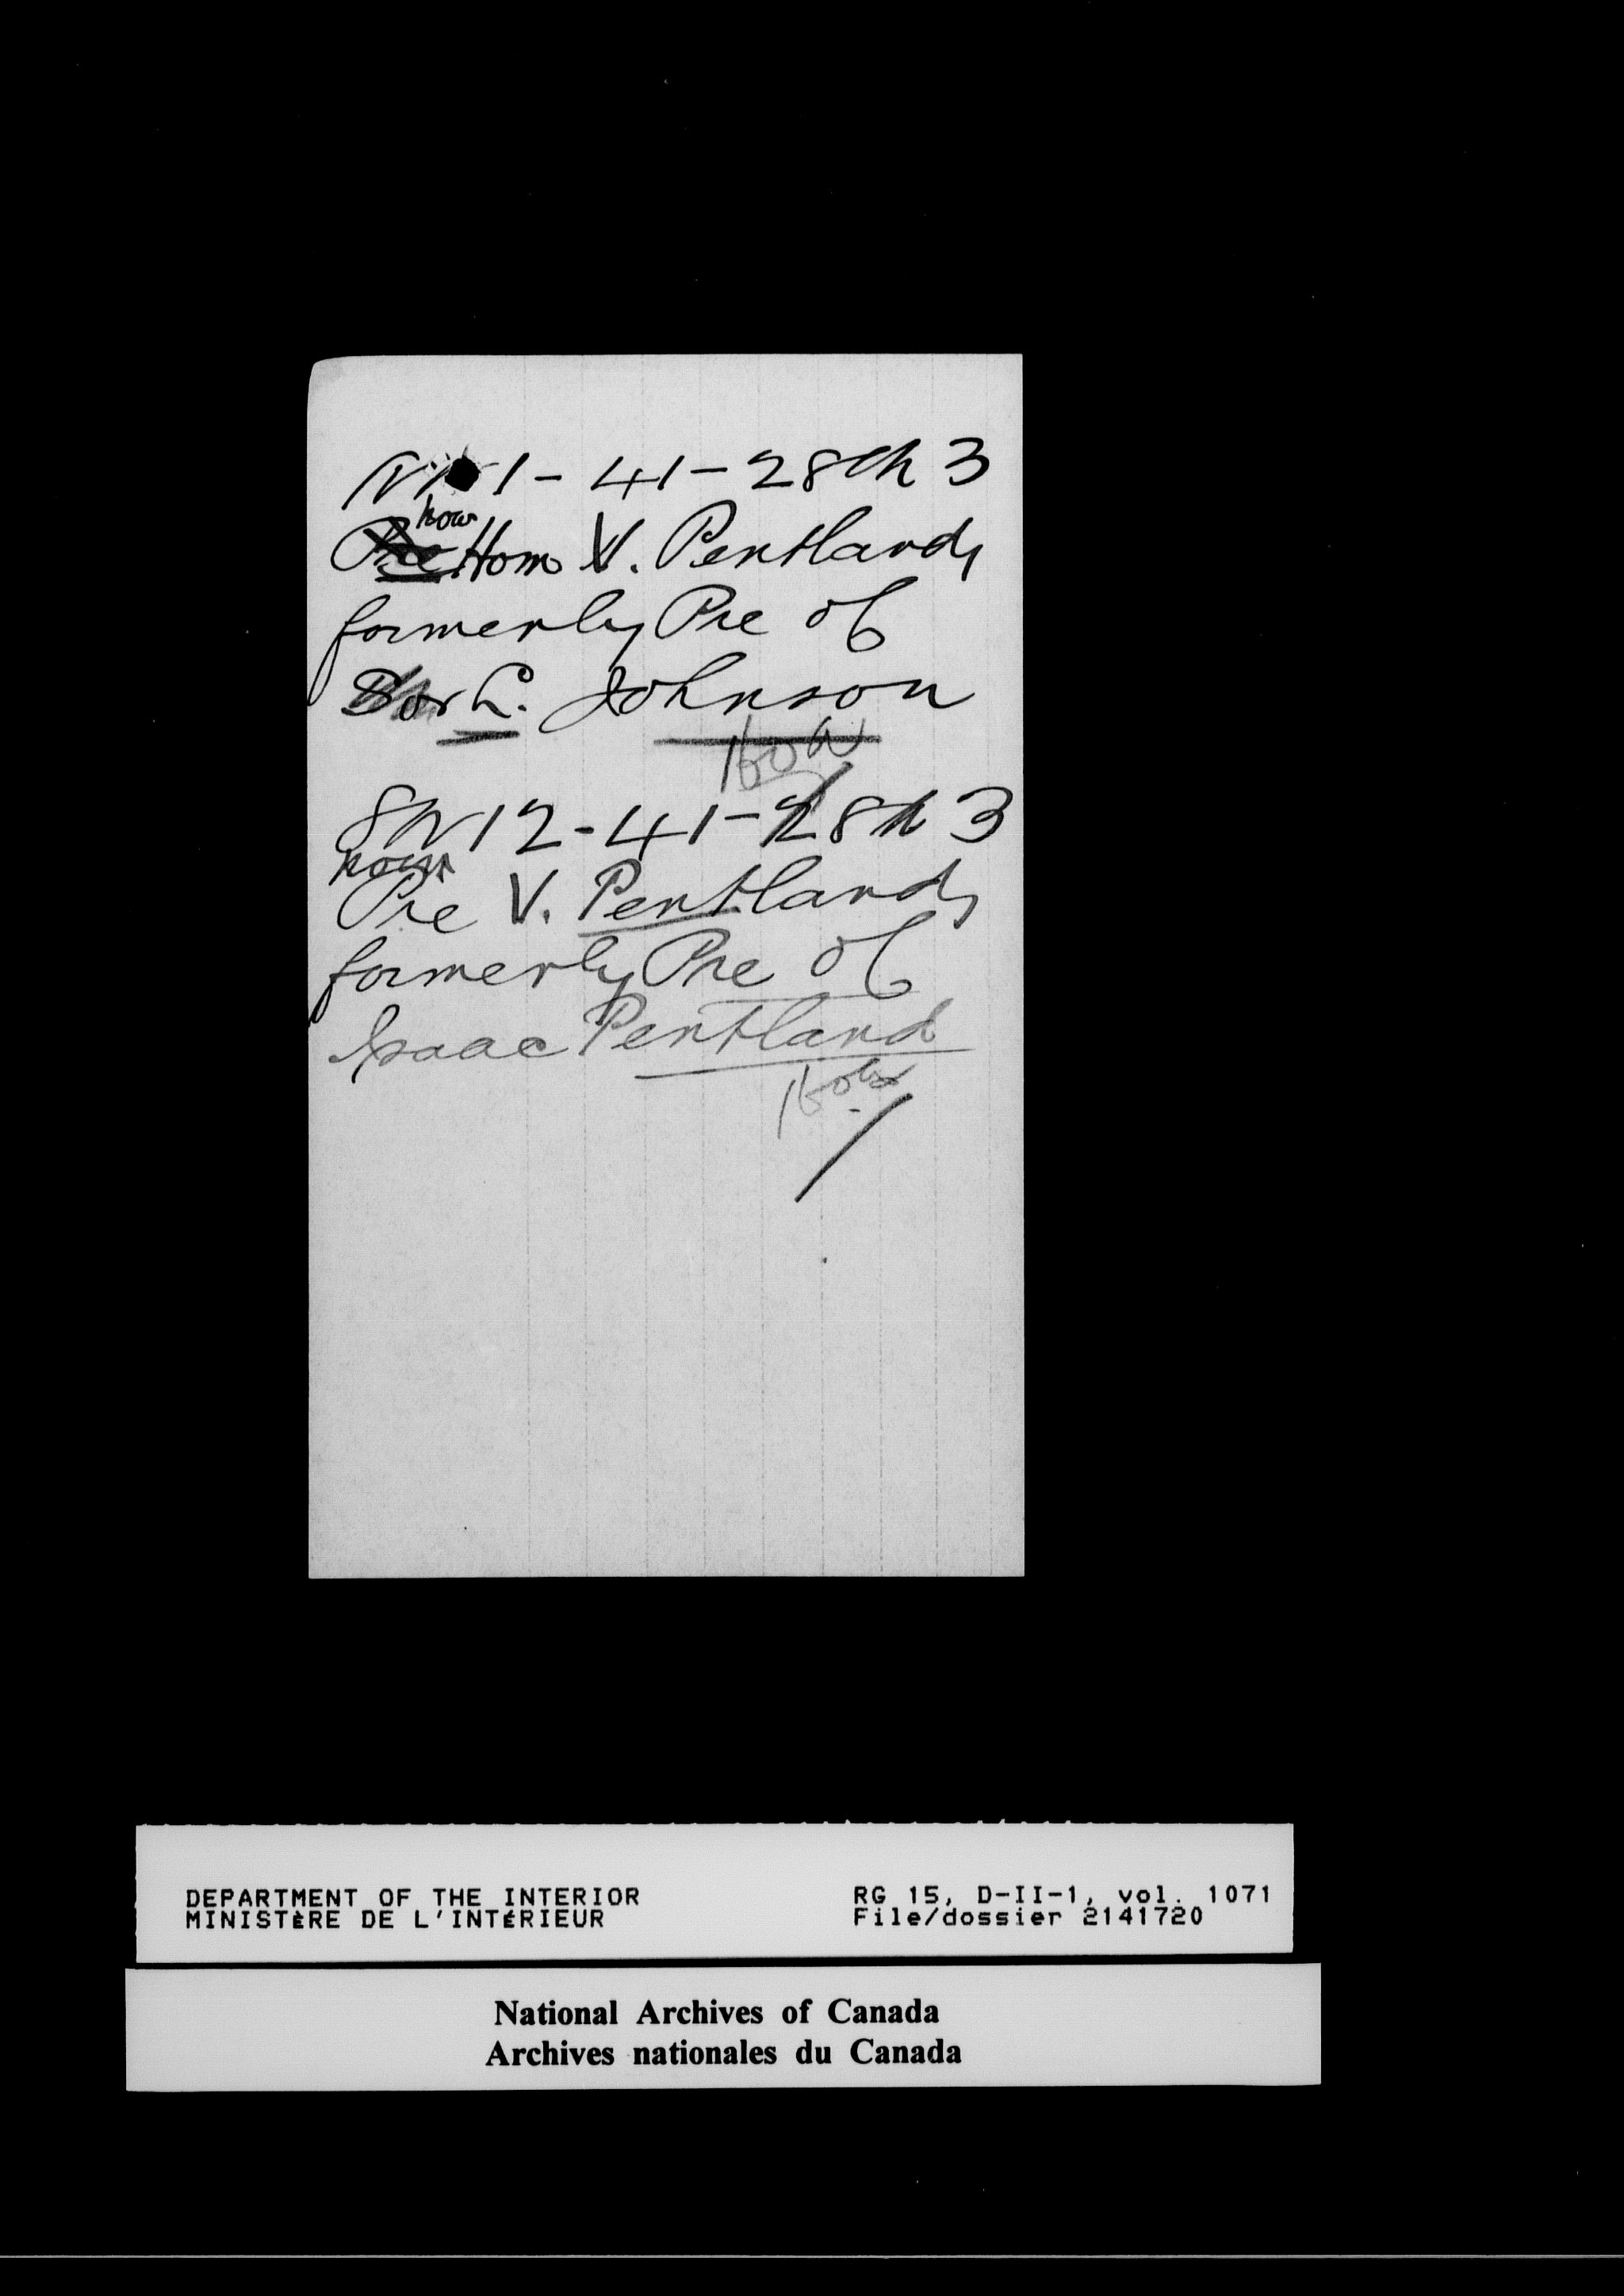 NW 1 - 41 - 28 W 3
now
Hom V. Pentland,
formerly Pre of
C. Johnson
160 a
SW 12 - 41 - 28 W 3
now
Pre V. Pentland,
formerly Pre of
Isaac Pentland
160 ac
DEPARTMENT OF THE INTERIOR
MINISTÈRE DE L'INTÉRIEUR
RG 15, D-II-1, vol. 1071
File/dossier 2141720
National Archives of Canada
Archives nationales du Canada